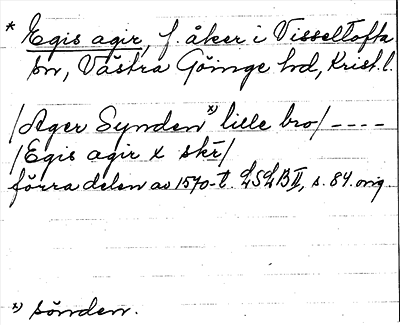 * Egis agir, f. åker i Visseltofta
sn, Västra Göinge hd, Krist. l.
/Ager Synden x) lille bro/ ----
/Egis agir x skr/
förra delen av 1570-t. LSLB II, s. 84. orig.
x) sönden.